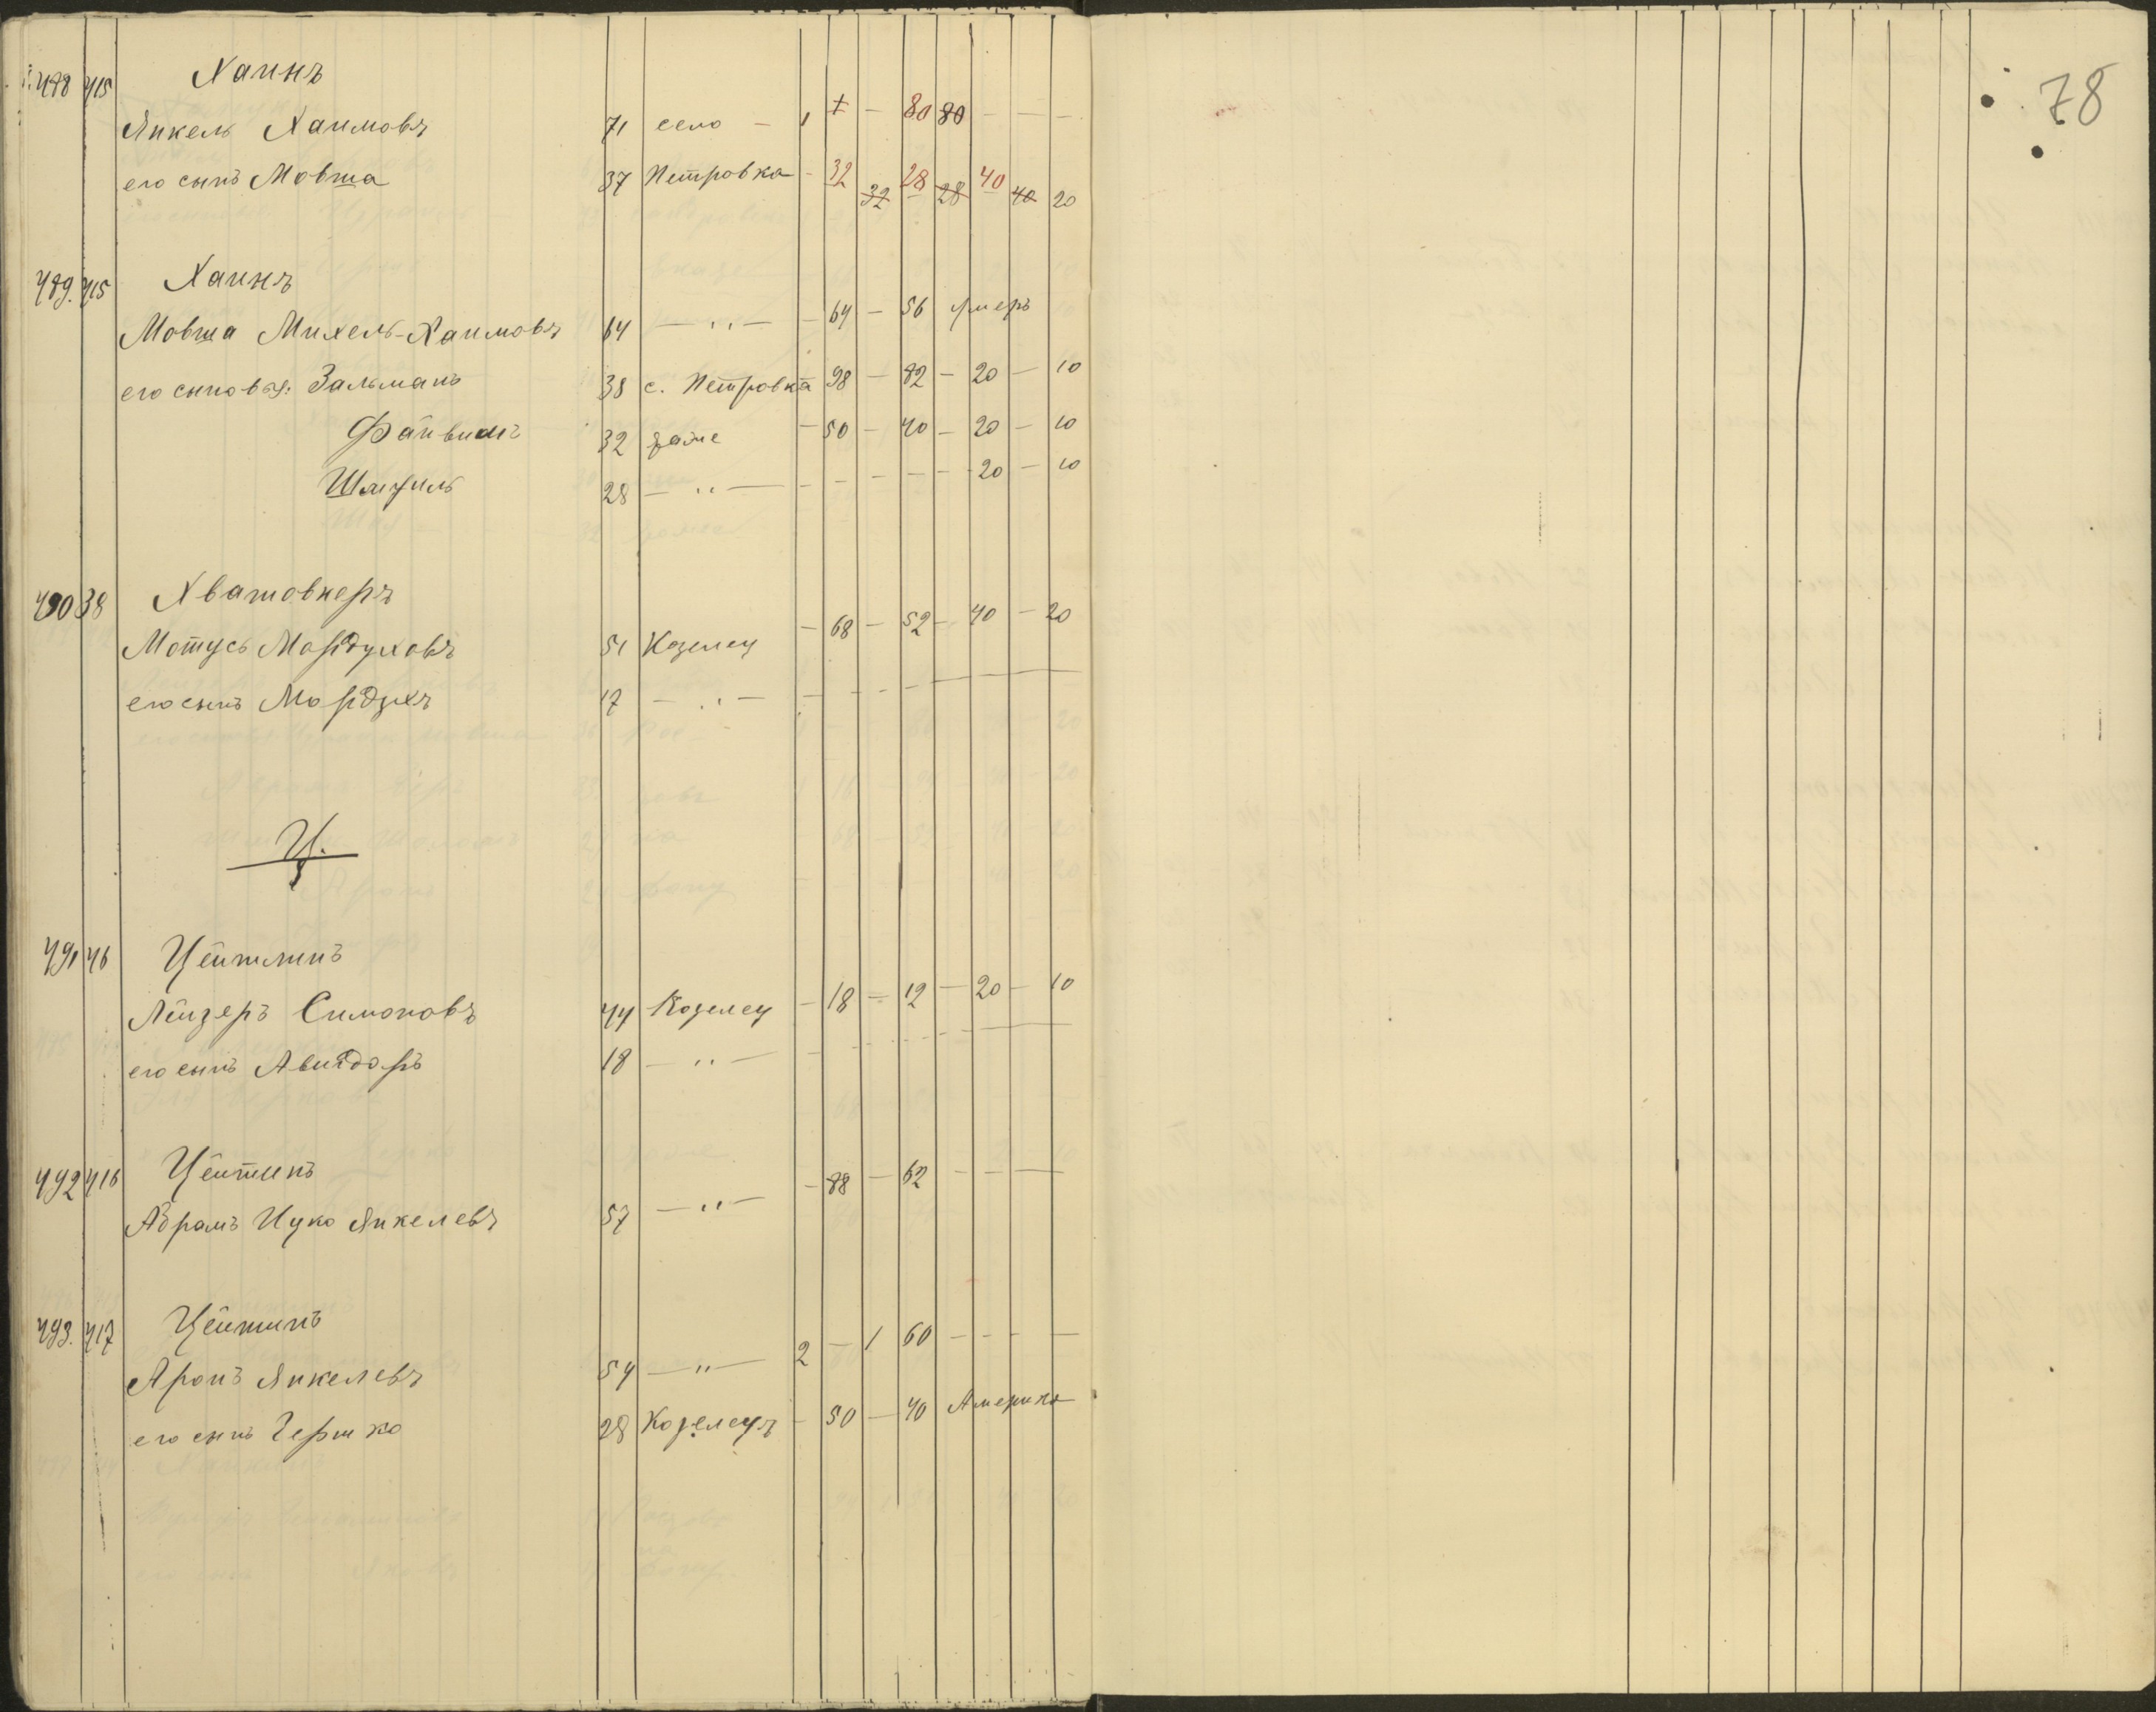 78
488 415 Хаинъ
Янкель Хаимовъ 71 село - 1 + - 80 80 - - -
его сынъ Мовша 37 Петровка - 32 32 28 28 40 40 20
489. 415 Хаинъ
Мовша Михель-Хаимовъ 64 — " — - 64 - 56 умеръ
его сыновья: Зальманъ 38 с. Петровка 98 - 82 - 20 - 10
Файвишъ 32 тоже - 50 - 40 - 20 - 10
Шмуиль 28 — " — - - - - - 20 - 10
490 38 Хватовкеръ
Мотусь Мордуховъ 51 Козелец - 68 - 52 - 40 - 20
его сынъ Мордухъ 17 — " — - - - -
Ц.
491 46 Цейтлинъ
Лейзеръ Симоновъ 44 Козелец - 18 - 12 - 20 - 10
его сынъ Авигдоръ 18 — " — - - - -
492 416 Цейтинъ
Абрамъ Ицко Янкелевъ 57 — " — - 88 - 62 - - -
493. 417 Цейтинъ
Аронъ Янкелевъ 54 — " — 2 - 1 60 - - - -
его сынъ Гершко 28 Козелецъ - 50 - 40 Америка